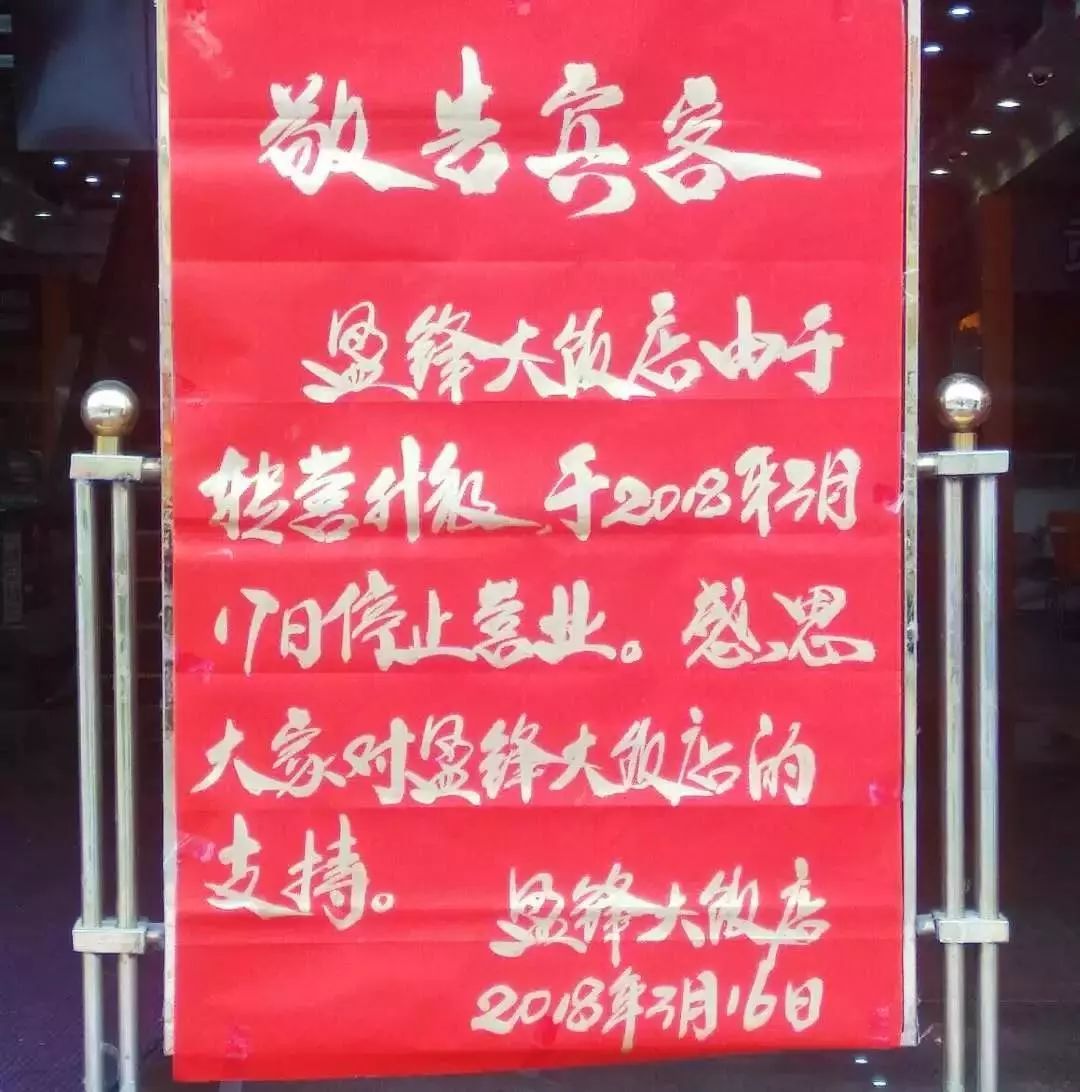 敬告宾客
盈锋大饭店由于
转营升级,于2018年3月
17日停止营业。感恩
大家对盈锋大饭店的
支持。
盈锋大饭店
2018年3月16日